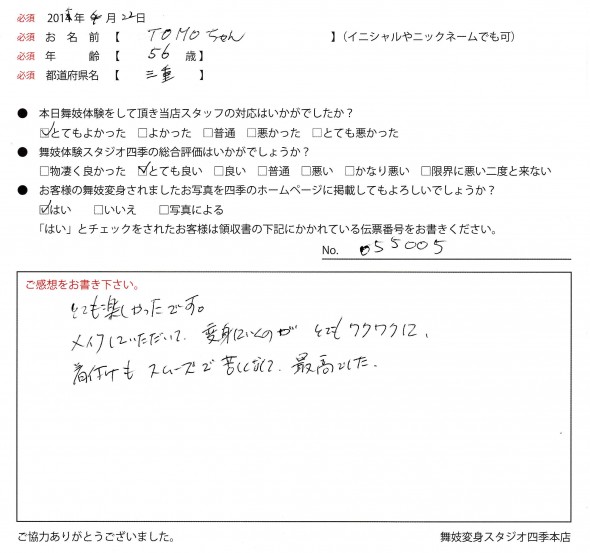 必須 201 年 4 月 22日
必須 お 名 前 【 TOMOちゃん 】(イニシャルやニックネームでも可)
必須 年 齢 【 56 歳】
必須 都道府県名 【 三重 】
● 本日舞妓体験をして頂き当店スタッフの対応はいかがでしたか？
☑とてもよかった □よかった □普通 □悪かった □とても悪かった
● 舞妓体験スタジオ四季の総合評価はいかがでしょうか？
□物凄く良かった ☑とても良い □良い □普通 □悪い □かなり悪い □限界に悪い二度と来ない
● お客様の舞妓変身されましたお写真を四季のホームページに掲載してもよろしいでしょうか？
☑はい □いいえ □写真による
「はい」とチェックをされたお客様は領収書の下記にかかれている伝票番号をお書きください。
No. 055005
ご感想をお書き下さい。
とても楽しかったです。
メイクしていただいて、変身していくのが とてもワクワクし、
着付けも スムーズで 苦しくなくて、最高でした。
ご協力ありがとうございました。
舞妓変身スタジオ四季本店